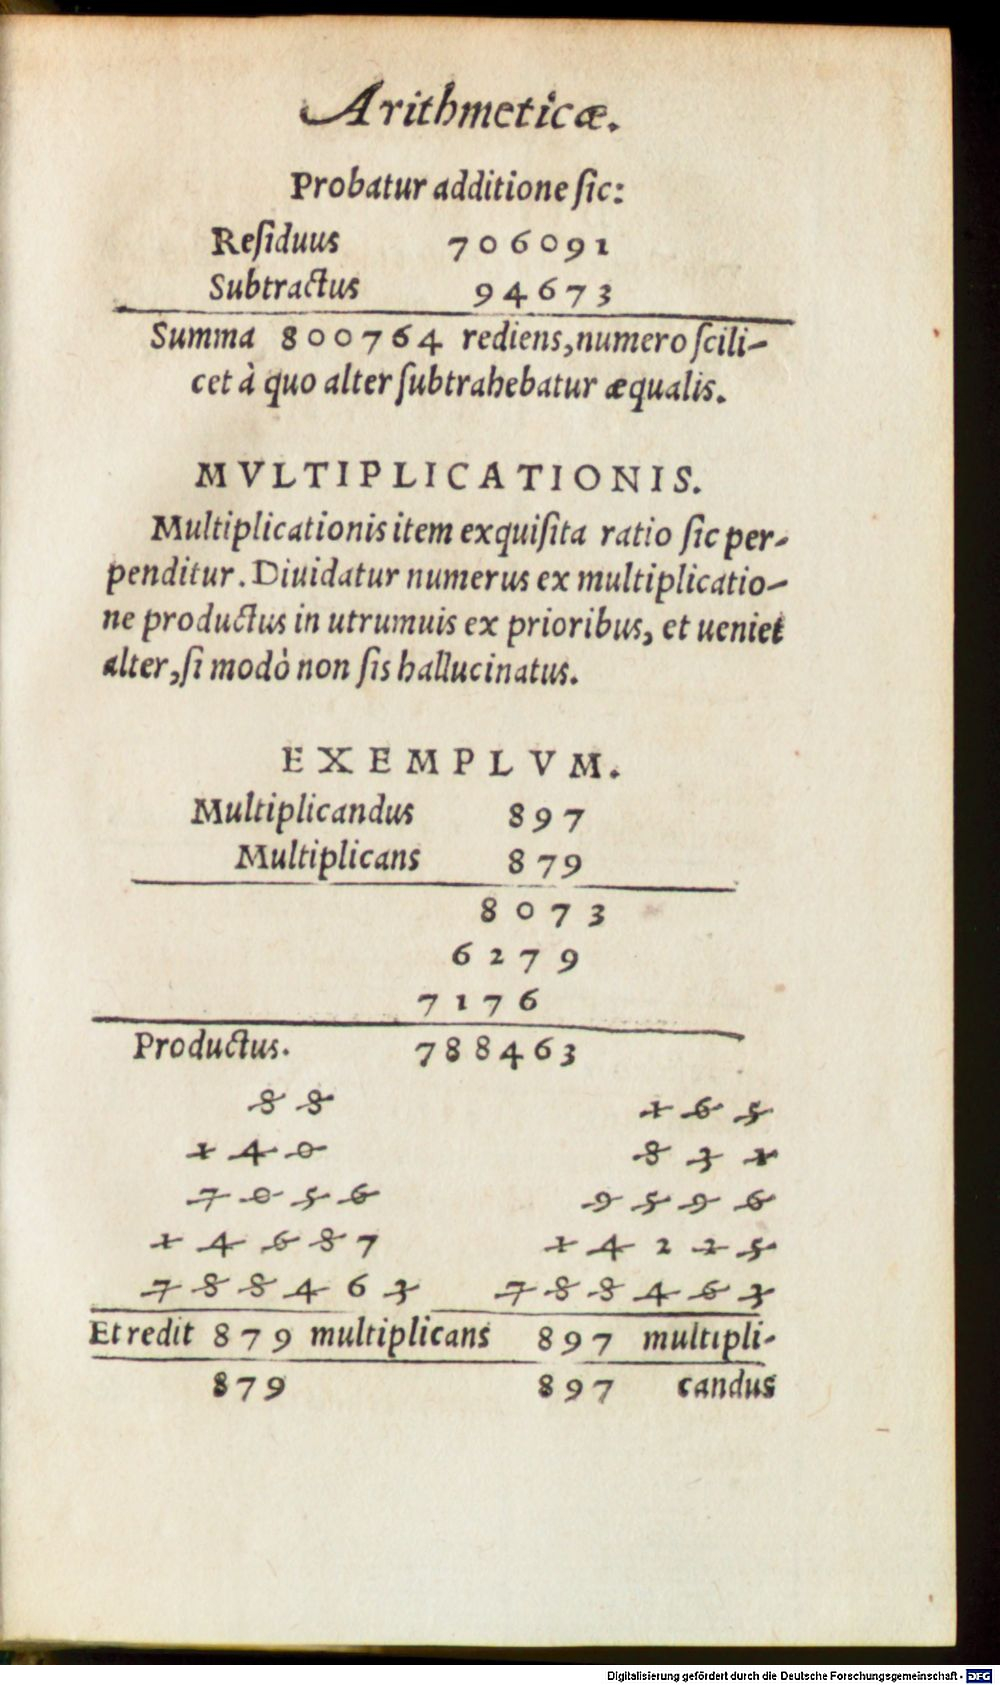 Arithmeticæ.
Probatur additione ſic:
Reſiduus 706091
Subtractus 94673
Summa 800764 rediens, numero ſcili-
cet à quo alter ſubtrahebatur æqualis.
MVLTIPLICATIONIS.
Multiplicationis item exquiſita ratio ſic per-
penditur. Diuidatur numerus ex multiplicatio-
ne productus in utrumuis ex prioribus, et ueniet
alter, ſi modò non ſis hallucinatus.
EXEMPLVM.
Multiplicandus 897
Multiplicans 879
8073
6279
7176
Productus. 788463
88 165
140 831
7056 9596
14687 14225
788463 788463
Et redit 879 multiplicans 897 multipli-
879 897 candus
Digitalisierung gefördert durch die Deutsche Forschungsgemeinschaft - DFG